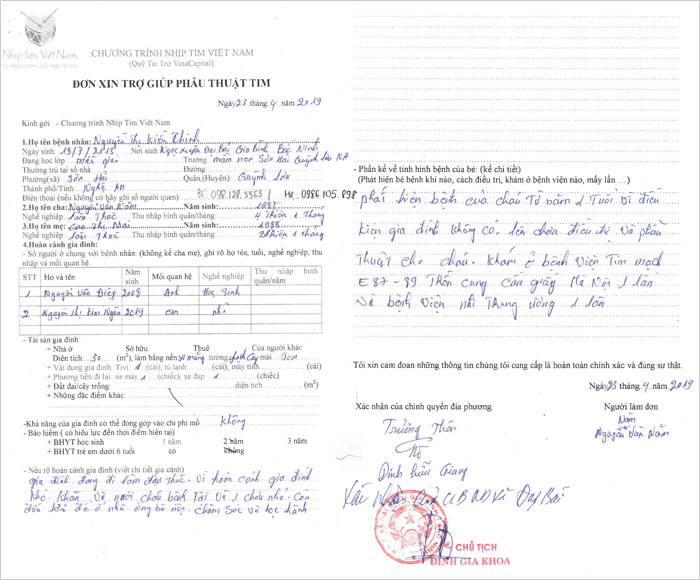 Nhịp tim Việt Nam
CHƯƠNG TRÌNH NHỊP TIM VIỆT NAM
(Quỹ Tài Trợ VinaCapital)
ĐƠN XIN TRỢ GIÚP PHẪU THUẬT TIM
Ngày 23 tháng 4 năm 2019
Kính gởi - Chương trình Nhịp Tim Việt Nam
1.Họ tên bệnh nhân: Nguyễn Thị Kiến
Ngày sinh 19/7/2015 Nơi sinh Gia Bình Bắc Ninh
Đang học lớp: mẫu giáo Trường mầm non Sơn Hải Quỳnh lưu N.A
Thường trú tại số nhà Đường:
Phường(xã) Sơn Hải Quận,(Huyện) Quỳnh lưu
Thành phố/Tỉnh: Nghệ An
Điện thoại (nếu không có hãy ghi số người quen): Bố: 098.128.5563 / Mẹ: 0986.105.898
2.Họ tên cha: Nguyễn Văn Năm Năm sinh:
Nghề nghiệp: làm Thuê Thu nhập bình quân/tháng: 4 Triệu 1 tháng
3.Họ tên mẹ: Cao Thị Mai Năm sinh: 1988
Nghề nghiệp: làm Thuê Thu nhập bình quân/tháng: 2 Triệu 1 tháng
4.Hoàn cảnh gia đình:
- Số người ở chung với bệnh nhân: (không kể cha mẹ), ghi rõ họ tên, tuổi, nghề nghiệp, thu nhập và mối quan hệ.
STT Họ và tên Năm sinh Mối quan hệ Nghề nghiệp Thu nhập bình quân/tháng
1 Nguyễn Văn Điệp 2008 Anh Học Sinh
2 Nguyễn Thị Kim Ngân 2019 em nhỏ
- Tài sản gia đình:
+ Nhà ở Sở hữu Thuê Của người khác
Diện tích 30 (m²), làm bằng nền xi măng tường mái Tôn
+ Vật dụng gia đình Tivi 1 (cái), tủ lạnh (cái), máy tính (cái)
+ Phương tiện đi lại xe máy 1 (chiếc), xe đạp 1 (chiếc)
+ Đất đai/cây trồng diện tích (m²)
+ Những đặc điểm khác:
-Khả năng của gia đình có thể đóng góp vào chi phí mổ Không
- Bảo hiểm ( có hiệu lực đến thời điểm hiện tại)
+ BHYT học sinh 1 năm 2 năm 3 năm
+ BHYT trẻ em dưới 6 tuổi có không
- Nêu rõ hoàn cảnh gia đình (viết chi tiết gia cảnh)
gia đình đang đi làm Thuê. Vì hoàn cảnh gia đình
khó khăn và nuôi cháu bệnh Tật và 1 cháu nhỏ. Con
đầu ở nhà ông bà nội chăm sóc và học hành
- Phần kể về tình hình bệnh của bé: (kể chi tiết)
(Phát hiện bé bệnh khi nào, cách điều trị, khám ở bệnh viện nào, mấy lần ...)
phát hiện bệnh của cháu Từ năm 1 Tuổi vì điều
kiện gia đình không có. lên chưa điều trị và phẫu
Thuật cho cháu. Khám ở bệnh viện Tim mạch
E 87-89 Trần cung cầu giấy Hà Nội 1 lần
Và bệnh viện nhi Trung ương 1 lần
Tôi xin cam đoan những thông tin chúng tôi cung cấp là hoàn toàn chính xác và đúng sự thật.
Ngày 25 tháng 4 năm 2019
Xác nhận của chính quyền địa phương Người làm đơn
Trưởng Thôn Năm
Nguyễn Văn Năm
Đinh Hữu Giang
Xác Nhận Của UBND Xã Đại Bái
CHỦ TỊCH
ĐINH GIA KHOA